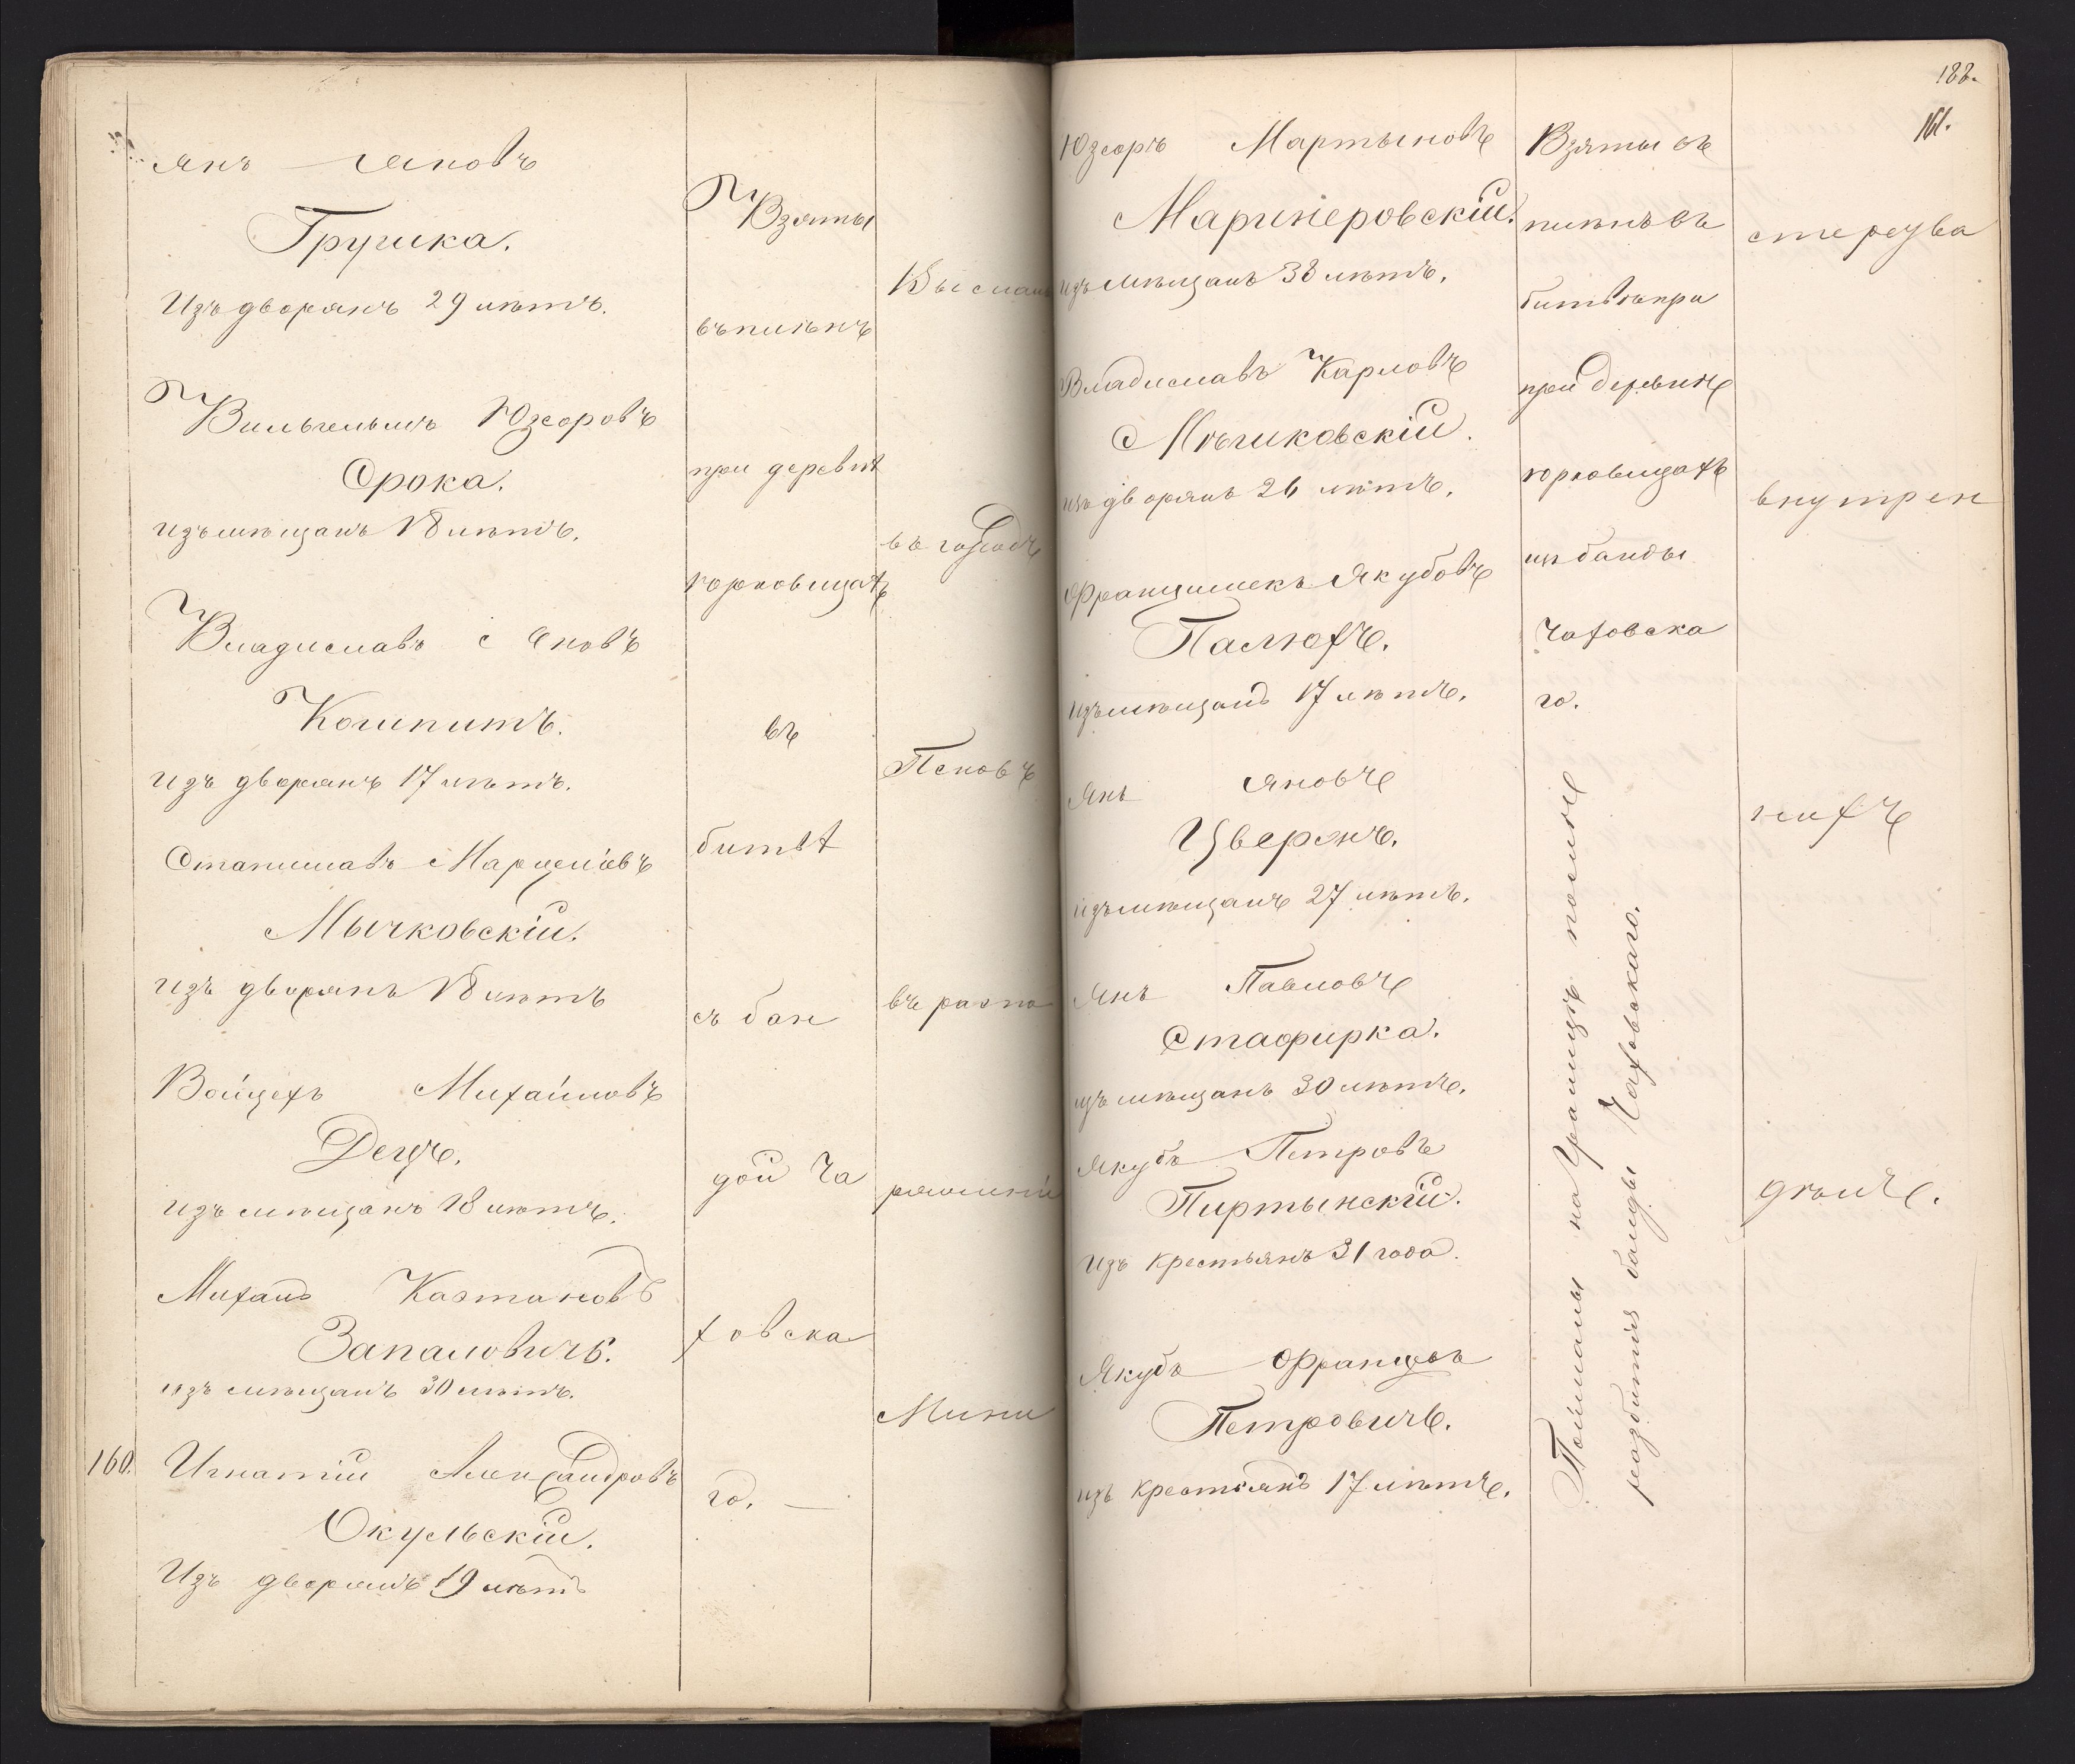 Янъ Яновъ
Грушка.
Изъ дворянъ 29 лѣтъ.
Вильгельмъ Юзефовъ
Срока.
изъ мѣщанъ 18 лѣтъ.
Владиславъ Яновъ
Кошпитъ.
изъ дворянъ 17 лѣтъ.
Станиславъ Марцелiевъ
Мычковскій.
изъ дворянъ 18 лѣтъ
Войцехъ Михайловъ
Децъ.
изъ мѣщанъ 18 лѣтъ.
Михаилъ Каэтановъ
Запаловичъ.
изъ мѣщанъ 30 лѣтъ.
160. Игнатій Александровъ
Окульскій.
Изъ дворянъ 19 лѣтъ
Взяты
въ плѣнъ
при деревнѣ
Юрковицахъ
въ
битвѣ
съ бан
дой Ча
ховска
го. —
Высланы
въ городъ
Псковъ
въ распо
ряженiи
Мини
188.
161.
Юзефъ Мартыновъ
Маринеровскій.
изъ мѣщанъ 38 лѣтъ.
Владиславъ Карловъ
Мѣчиковскій.
изъ дворянъ 26 лѣтъ.
Францишекъ Якубовъ
Палюхъ.
изъ мѣщанъ 17 лѣтъ.
Янъ Яновъ
Цверенъ.
изъ мѣщанъ 27 лѣтъ.
Янъ Павловъ
Стафирка.
изъ мѣщанъ 30 лѣтъ.
Якубъ Петровъ
Пиртынскій.
Изъ крестьянъ 31 года.
Якубъ Францовъ
Петровичъ.
изъ крестьянъ 17 лѣтъ.
Взяты въ
плѣнъ въ
битвѣ при
при деревнѣ
Юрковицахъ
изъ банды
Чаховска
го.
Пойманы на Границѣ послѣ
разбитія банды Чаховскаго.
стерства
внутрен
нихъ
дѣлъ.